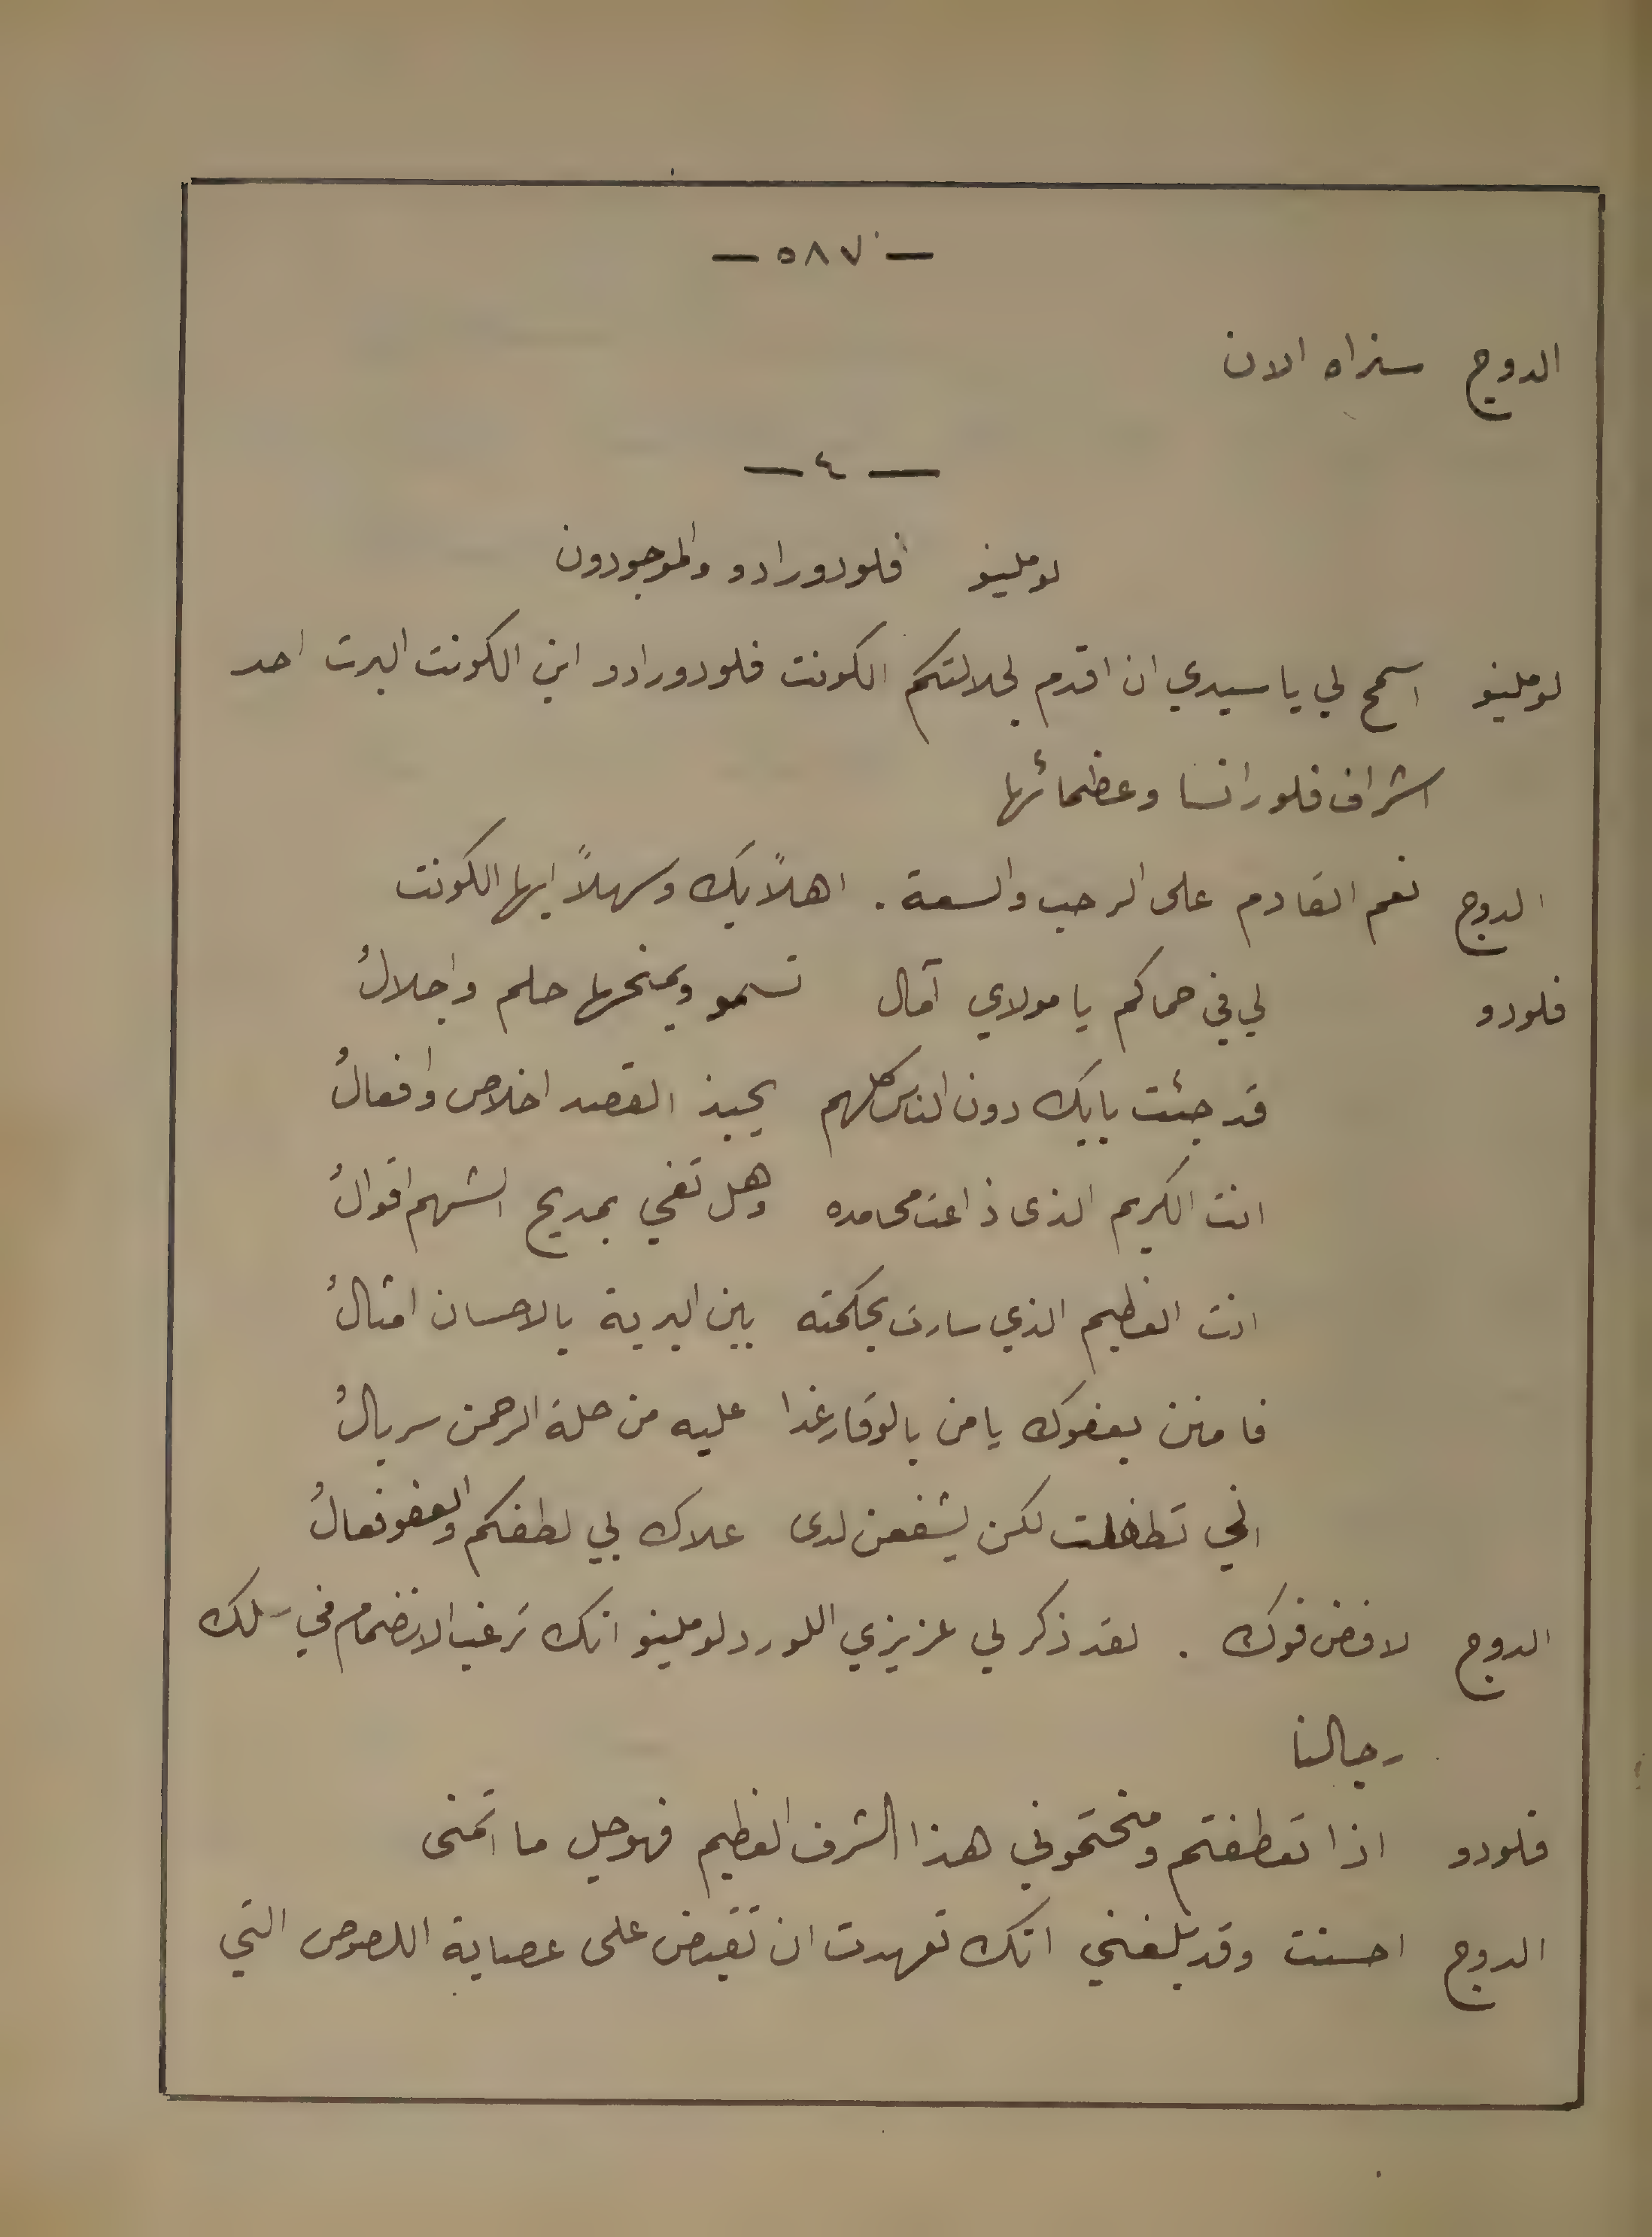 — ٥٨٧ —
الدوج سنراه الان
— ٤ —
لوملينو فلودورادو والموجودون
لوملينو اسمح لي يا سيدي ان اقدم لجلالتكم الكونت فلودورادو ابن الكونت البرت احد
اشراف فلورانسا وعظمائها
الدوج نعم القادم على الرحب والسعة . اهلاً بك وسهلاً ايها الكونت
فلودو لي في حماكم يا مولاي آمال تسمو ويمنحها حلم واجلالُ
قد جئت بابك دون الناس كلهم يحبذ القصد اخلاص وافعالُ
انت الكريم الذى ذاعت محامده وهل تفي بمديح الشهم اقوالُ
انت العظيم الذي سارت بحكمته بين البرية بالاحسان امثالُ
فامنن بعفوك يا من بالوقار غدا عليه من حلة الرحمن سربالُ
اني تطفلت لكن يشفعن لدى علاك بي لطفكم والعفو فعالُ
الدوج لا فض فوك . لقد ذكر لي عزيزي اللورد لوملينو انك ترغب الانضمام في سلك
رجالنا
فلودو اذا تعطفتم ومنحتموني هذا الشرف العظيم فهو جل ما اتمنى
الدوج احسنت وقد بلغني انك تعهدت ان تقبض على عصابة اللصوص التي